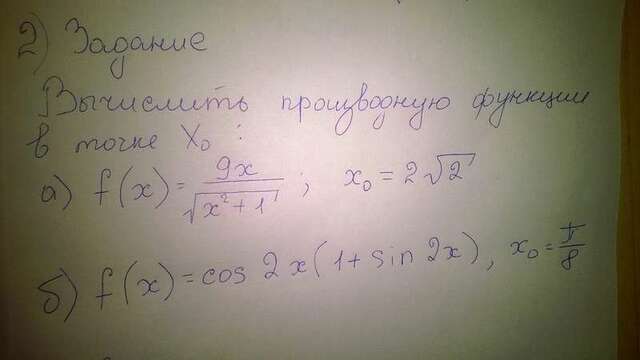 2) Задание
Вычислить производную функции
в точке x₀ :
а) f(x) = 9x / √(x² + 1) ; x₀ = 2√2
б) f(x) = cos 2x (1 + sin 2x), x₀ = π/8